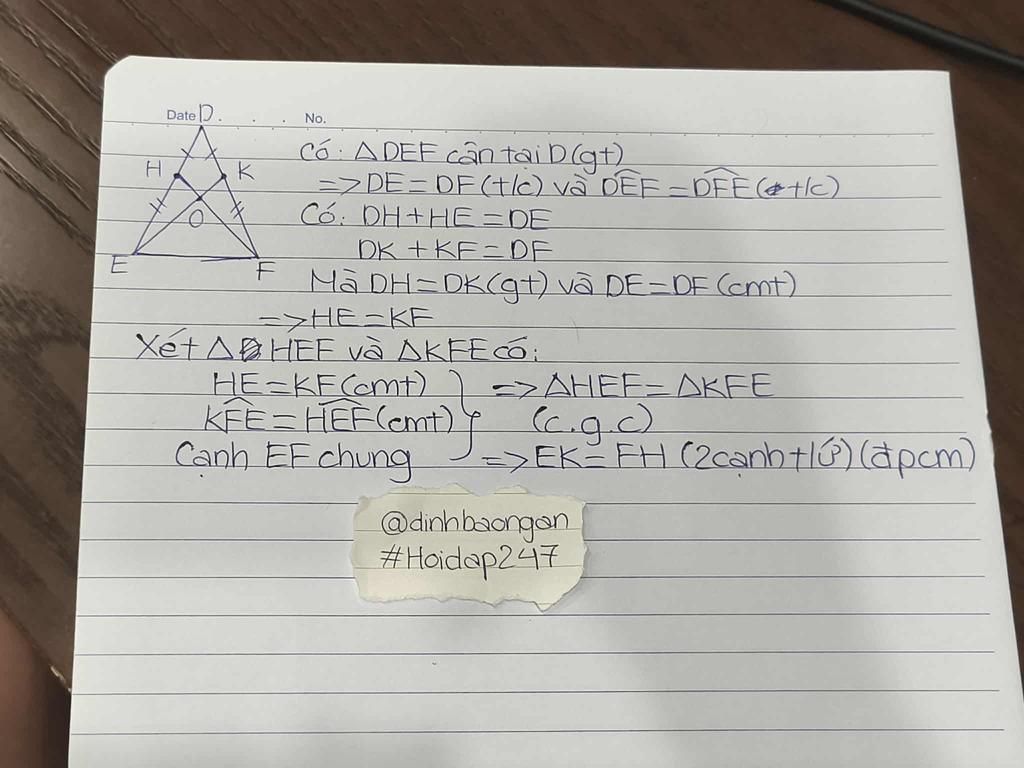 Date D . . . No.
H K
O
E F
Có: ΔDEF cân tại D (gt)
=> DE = DF (t/c) và DEF = DFE (t/c)
Có: DH + HE = DE
DK + KF = DF
Mà DH = DK (gt) và DE = DF (cmt)
=> HE = KF
Xét Δ HEF và ΔKFE có:
HE = KF (cmt) => ΔHEF = ΔKFE
KFE = HEF (cmt) (c.g.c)
Cạnh EF chung => EK = FH (2 cạnh t/ứ) (đpcm)
@dinhbaongan
#Hoidap247